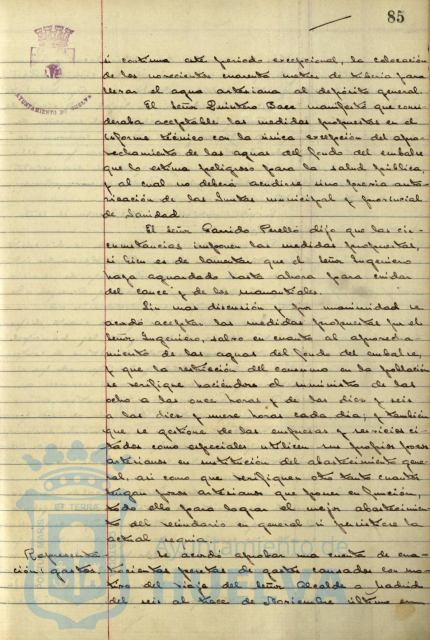 85
AYUNTAMIENTO DE HUELVA
si continua este periodo excepcional, la colocación
de los novecientos cuarenta metros de tubería para
llevar el agua artesiana al depósito general.
El señor Quintero Baez manifestó que consi-
deraba aceptable las medidas propuestas en el
informe técnico con la única excepción del apro-
vechamiento de las aguas del fondo del embalse
que lo estima peligroso para la salud pública,
y al cual no deberá acudirse sino previa auto-
rización de las Juntas municipal y provincial
de Sanidad.
El señor Garrido Perelló dijo que las cir-
cunstancias imponen las medidas propuestas,
si bien es de lamentar que el señor Ingeniero
haya aguardado hasta ahora para cuidar
del cauce y de los manantiales.
Sin mas discusión y por unanimidad se
acordó aceptar las medidas propuestas por el
señor Ingeniero, salvo en cuanto al aprovecha-
miento de las aguas del fondo del embalse,
y que la restricción del consumo en la población
se verifique haciéndose el suministro de las
ocho a las once horas y de las diez y seis
a las diez y nueve horas cada dia; y también
que se gestione de las empresas y servicios ci-
tados como especiales utilicen sus propios pozos
artesianos en sustitución del abastecimiento gene-
ral, asi como que verifiquen otro tanto cuantos
tengan pozos artesianos que poner en función,
todo ello para lograr el mejor abastecimien-
to del vecindario en general si persistiere la
actual sequia.
Representa- Se acordó aprobar una cuenta de cua-
ción: gastos. trocientas pesetas de gastos causados con mo-
tivo del viaje del señor Alcalde a Madrid
del seis al trece de Noviembre último en
Ayuntamiento de
HUELVA